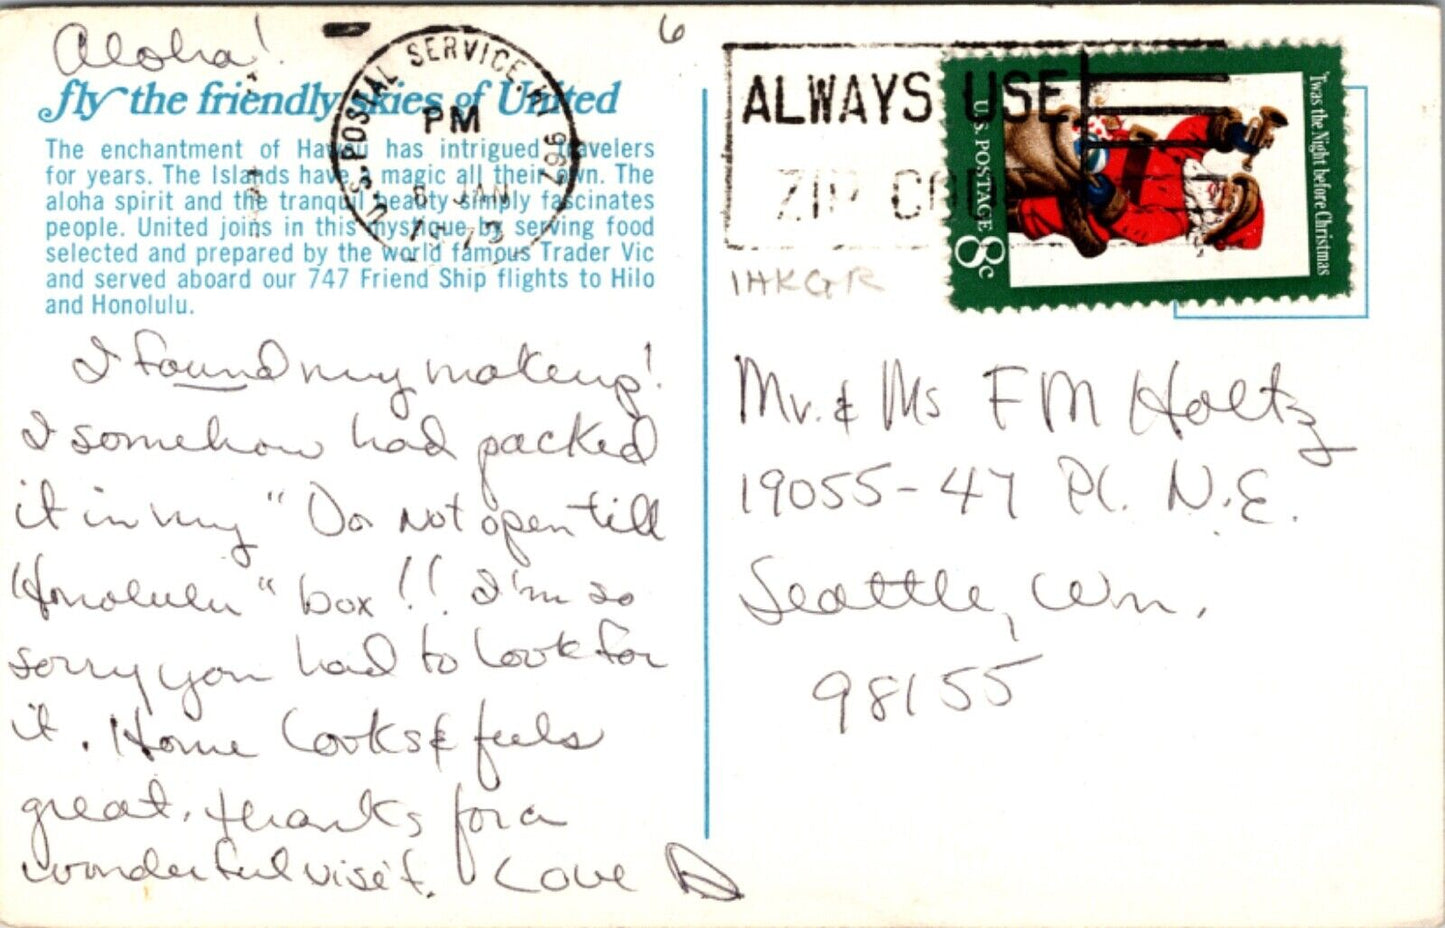 Aloha!
6
fly the friendly skies of United
The enchantment of Hawaii has intrigued travelers
for years. The Islands have a magic all their own. The
aloha spirit and the tranquil beauty simply fascinates
people. United joins in this mystique by serving food
selected and prepared by the world famous Trader Vic
and served aboard our 747 Friend Ship flights to Hilo
and Honolulu.
I found my makeup!
I somehow had packed
it in my "Do Not open till
Honolulu" box!! I'm so
sorry you had to look for
it. Home looks & feels
great. thanks for a
wonderful visit. Love D
U.S. POSTAL SERVICE. HI 967
PM
6 JAN
1973
ALWAYS USE
ZIP CODE
U.S. POSTAGE 8c
'Twas the Night before Christmas
1HKGR
Mr. & Ms F M Holtz
19055-47 Pl. N.E.
Seattle, Wn.
98155